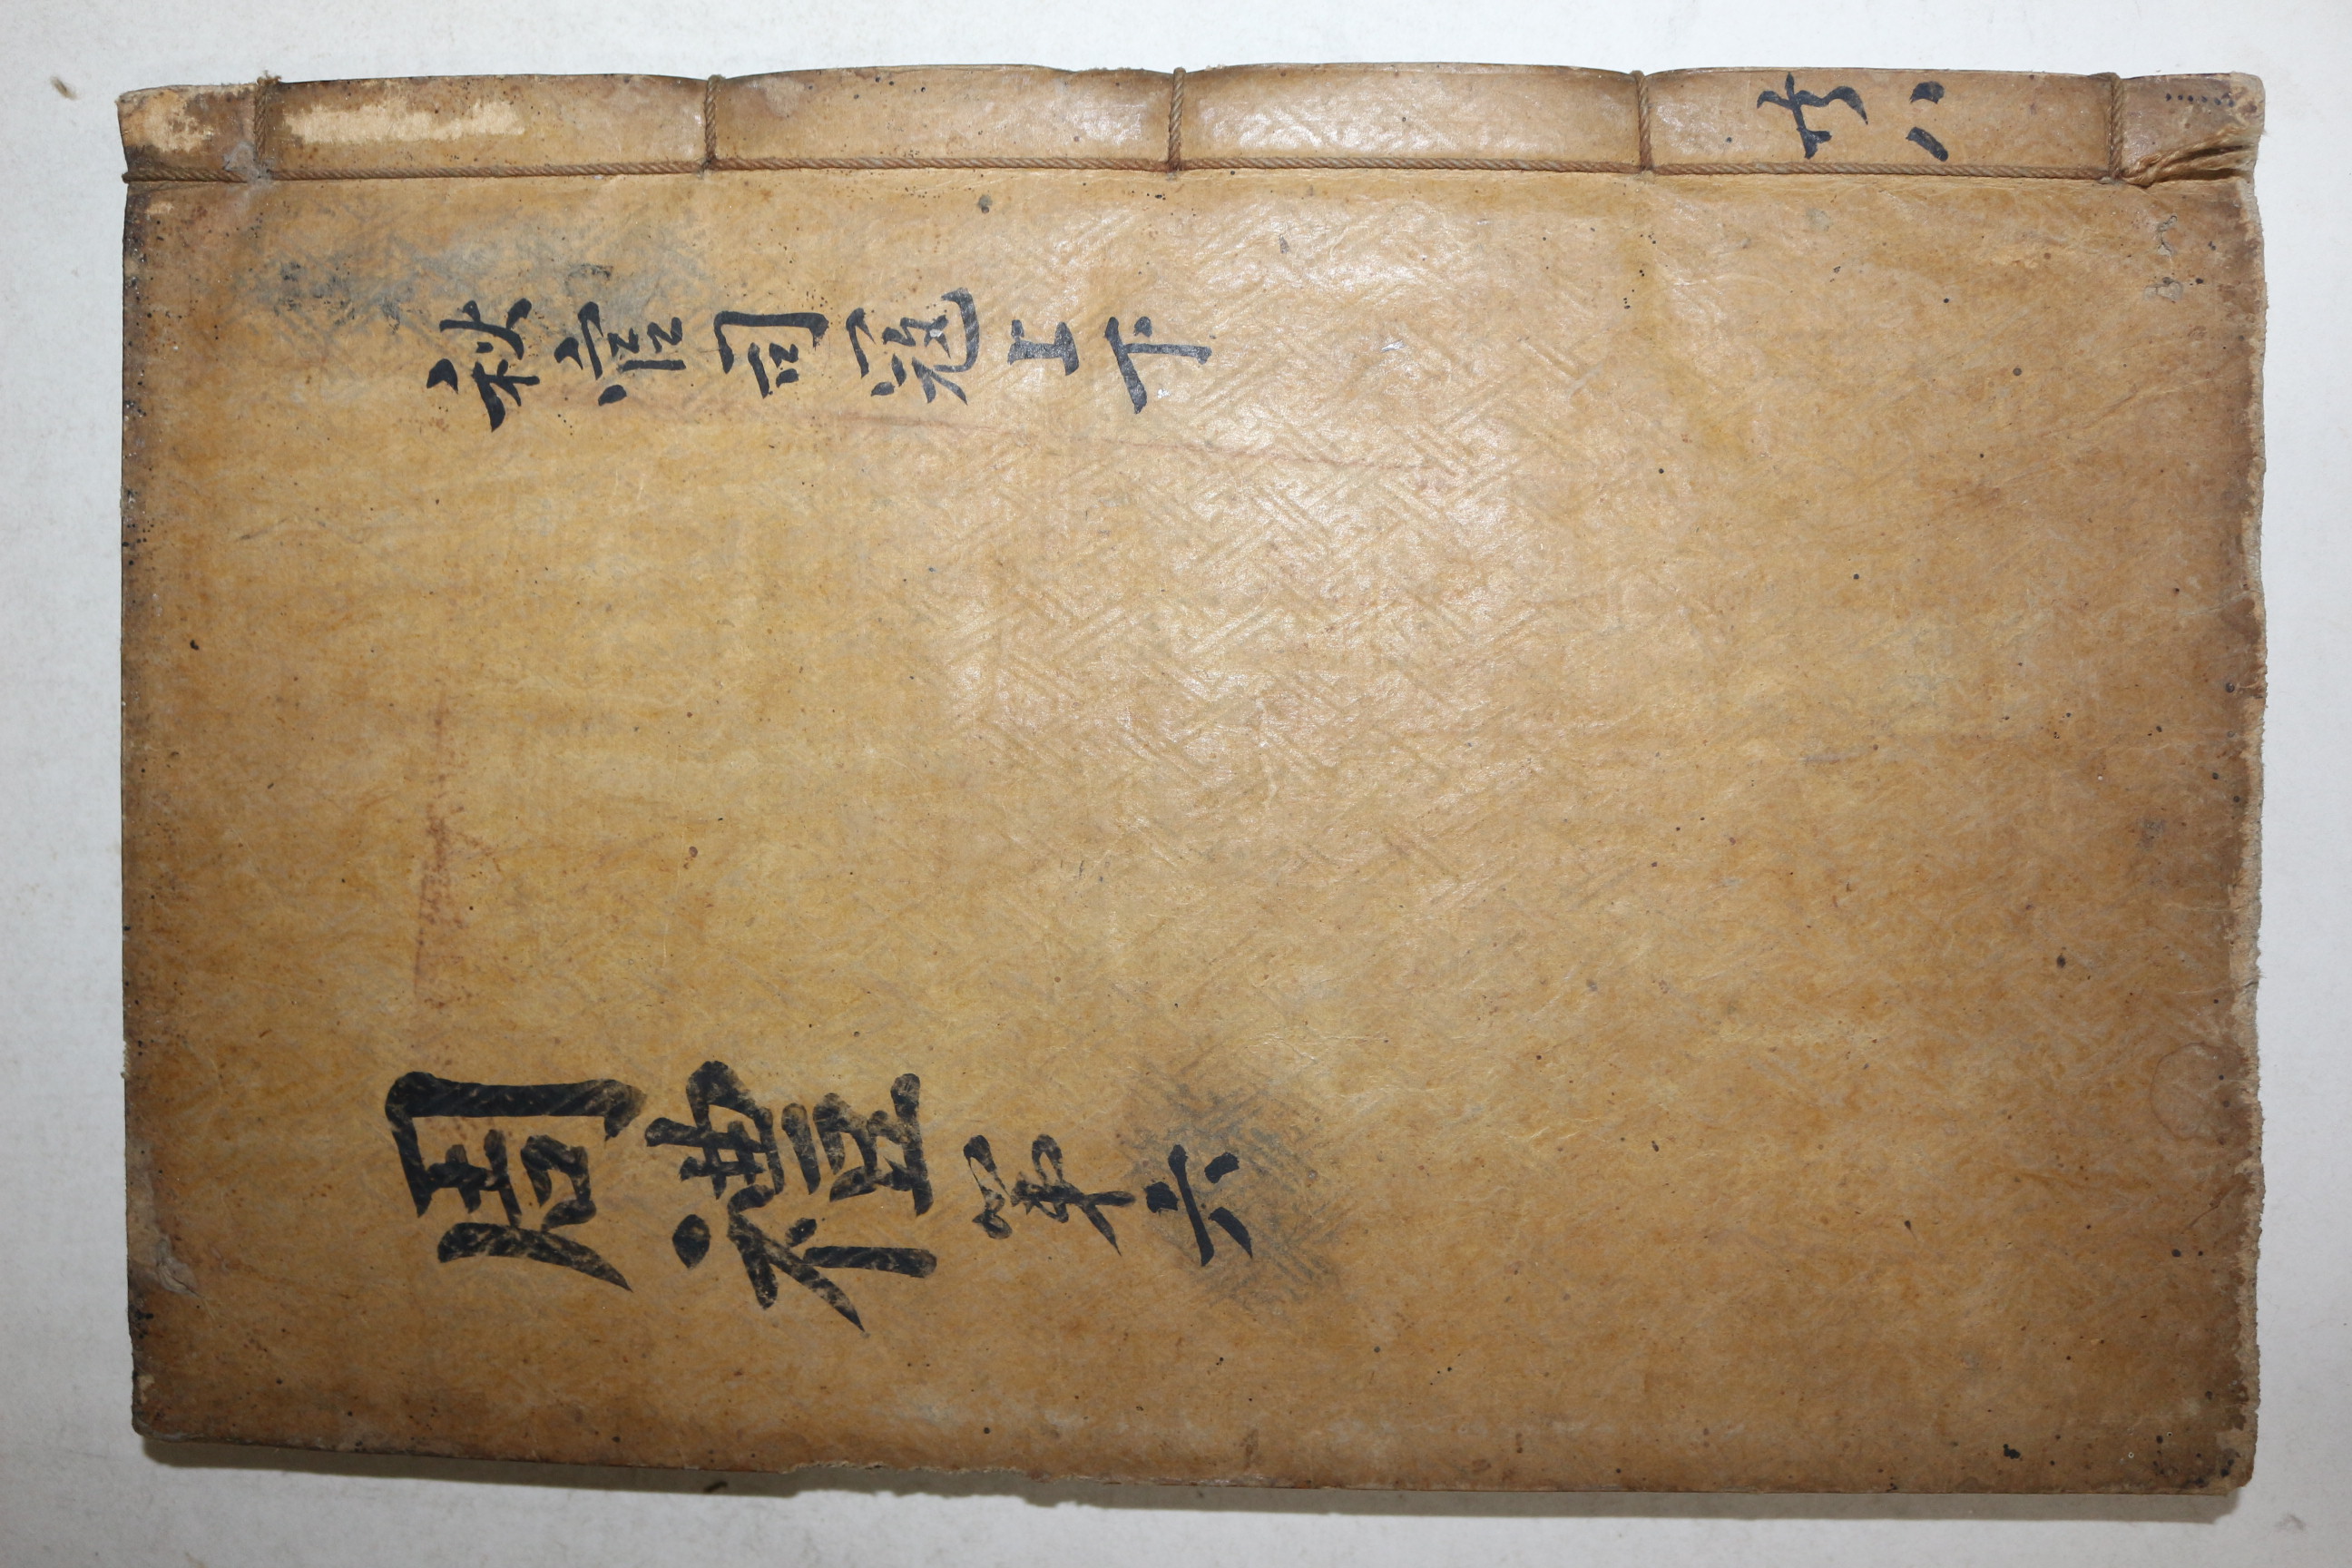 秋官司寇上下
周禮第六
共八